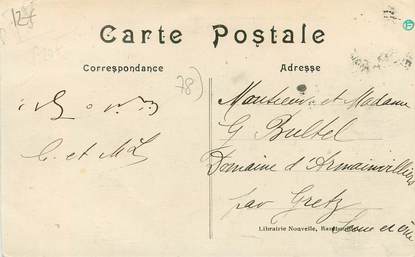 127
Carte Postale
Correspondance
Adresse
78)
Monsieur et Madame
G Bultel
Domaine d'Armainvilliers
par Gretz
Seine et
C. et M
Librairie Nouvelle,